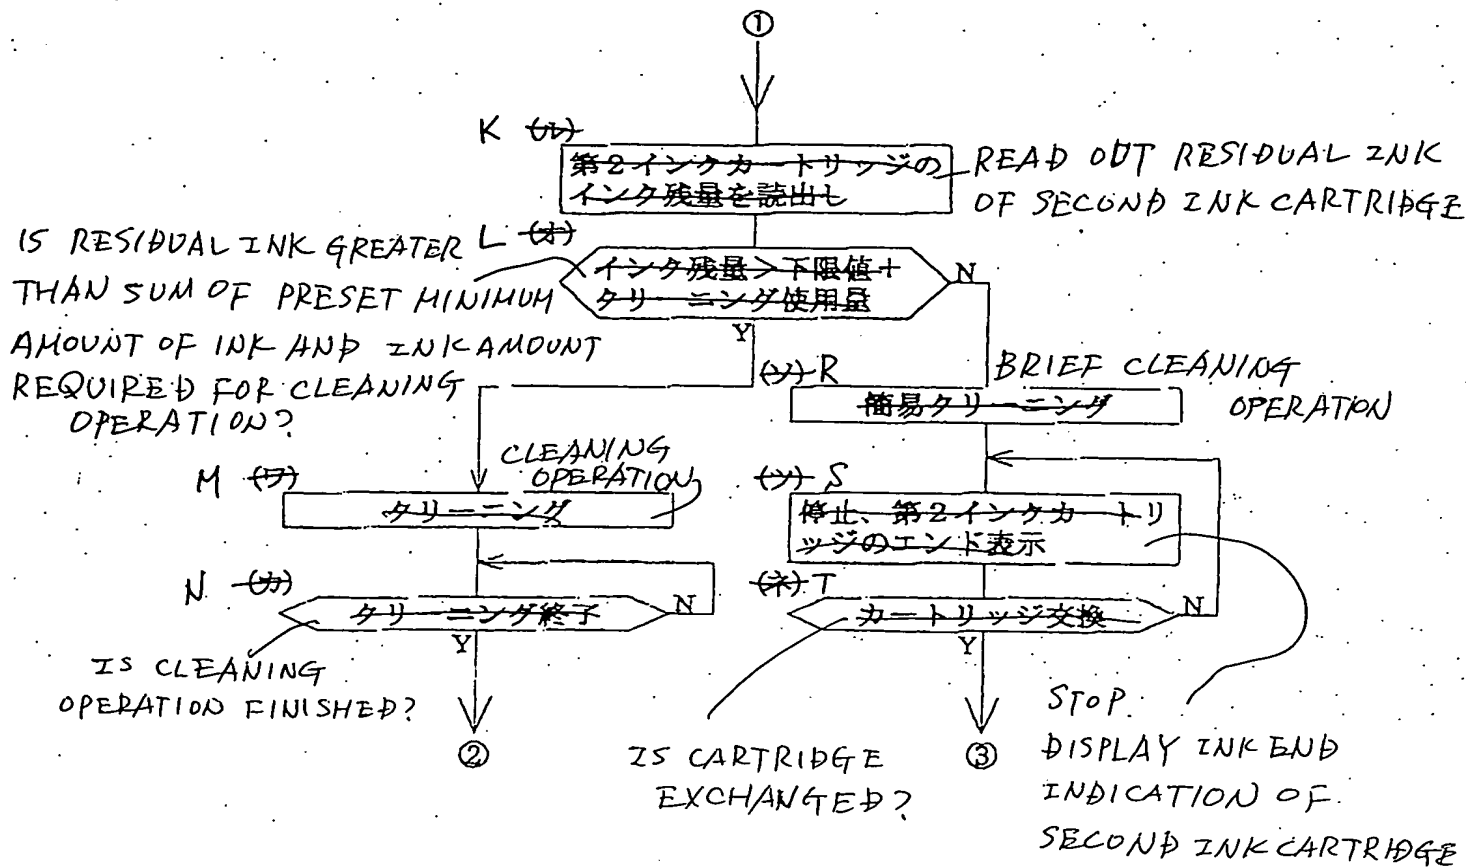 ①
K (ル)
第2インクカートリッジの
インク残量を読出し
READ OUT RESIDUAL INK
OF SECOND INK CARTRIDGE
L (オ)
インク残量>下限値+
クリーニング使用量
N
Y
IS RESIDUAL INK GREATER
THAN SUM OF PRESET MINIMUM
AMOUNT OF INK AND INK AMOUNT
REQUIRED FOR CLEANING
OPERATION?
(ソ) R
簡易クリーニング
BRIEF CLEANING
OPERATION
M (ワ)
クリーニング
CLEANING
OPERATION
(ツ) S
停止、第2インクカートリ
ッジのエンド表示
N (カ)
クリーニング終了
N
Y
(ネ) T
カートリッジ交換
N
Y
IS CLEANING
OPERATION FINISHED?
②
IS CARTRIDGE
EXCHANGED?
③
STOP.
DISPLAY INK END
INDICATION OF
SECOND INK CARTRIDGE